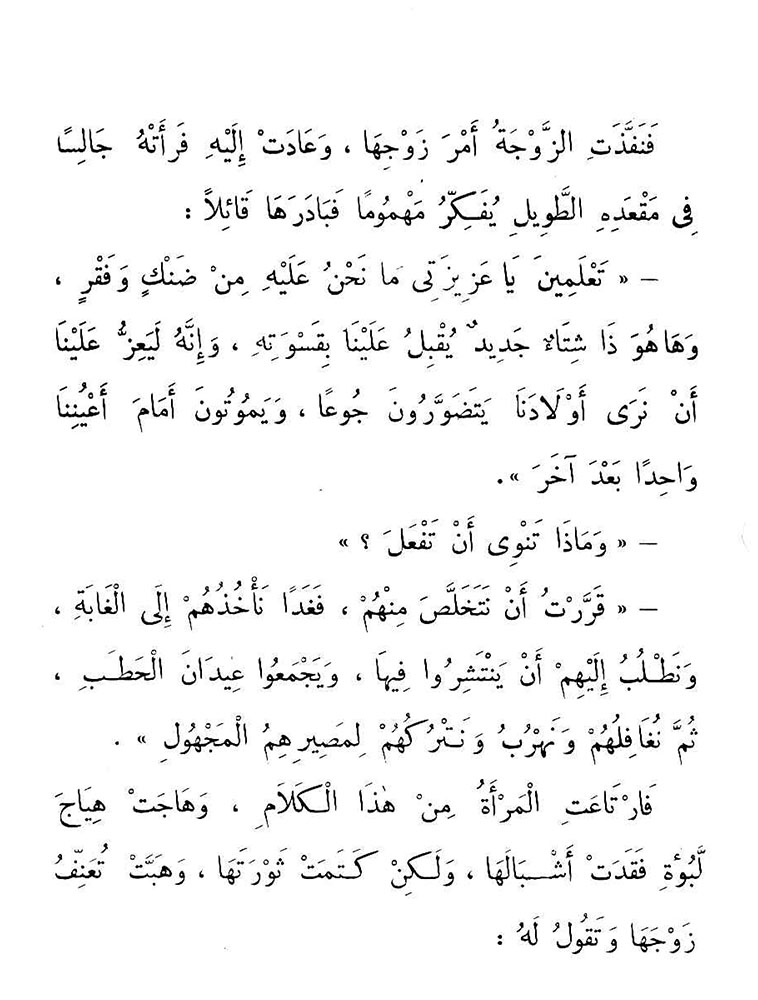 فَنَفَّذَتِ الزَّوْجَةُ أَمْرَ زَوْجِهَا ، وَعَادَتْ إِلَيْهِ فَرَأَتْهُ جَالِسًا
فِى مَقْعَدِهِ الطَّوِيلِ يُفَكِّرُ مَهْمُومًا فَبَادَرَهَا قَائِلاً :
– « تَعْلَمِينَ يَا عَزِيزَتِى مَا نَحْنُ عَلَيْهِ مِنْ ضَنْكٍ وَفَقْرٍ ،
وَهَاهُوَ ذَا شِتَاءٌ جَدِيدٌ يُقْبِلُ عَلَيْنَا بِقَسْوَتِهِ ، وَإِنَّهُ لَيَعِزُّ عَلَيْنَا
أَنْ نَرَى أَوْلَادَنَا يَتَضَوَّرُونَ جُوعًا ، وَيَمُوتُونَ أَمَامَ أَعْيُنِنَا
وَاحِدًا بَعْدَ آخَرَ » .
– « وَمَاذَا تَنْوِى أَنْ تَفْعَلَ ؟ »
– « قَرَّرْتُ أَنْ نَتَخَلَّصَ مِنْهُمْ ، فَغَدًا نَأْخُذُهُمْ إِلَى الْغَابَةِ ،
وَنَطْلُبُ إِلَيْهِمْ أَنْ يَنْتَشِرُوا فِيهَا ، وَيَجْمَعُوا عِيدَانَ الْحَطَبِ ،
ثُمَّ نُغَافِلُهُمْ وَنَهْرُبُ وَنَتْرُكُهُمْ لِمَصِيرِهِمُ الْمَجْهُولِ » .
فَارْتَاعَتِ الْمَرْأَةُ مِنْ هٰذَا الْكَلَامِ ، وَهَاجَتْ هِيَاجَ
لَبُؤَةٍ فَقَدَتْ أَشْبَالَهَا ، وَلَكِنْ كَتَمَتْ ثَوْرَتَهَا ، وَهَبَّتْ تُعَنِّفُ
زَوْجَهَا وَتَقُولُ لَهُ :